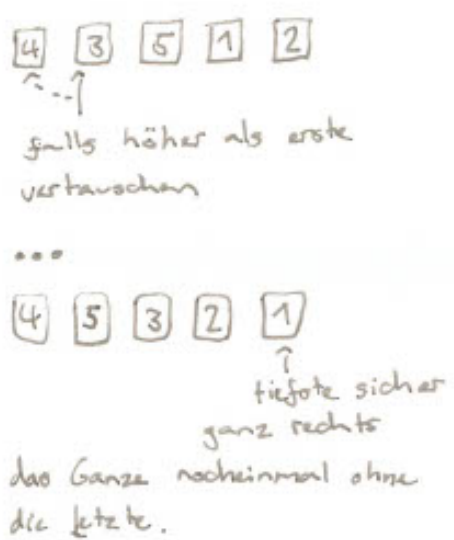 4 3 5 1 2
falls höher als erste
vertauschen
...
4 5 3 2 1
tiefste sicher
ganz rechts
das Ganze nocheinmal ohne
die letzte.